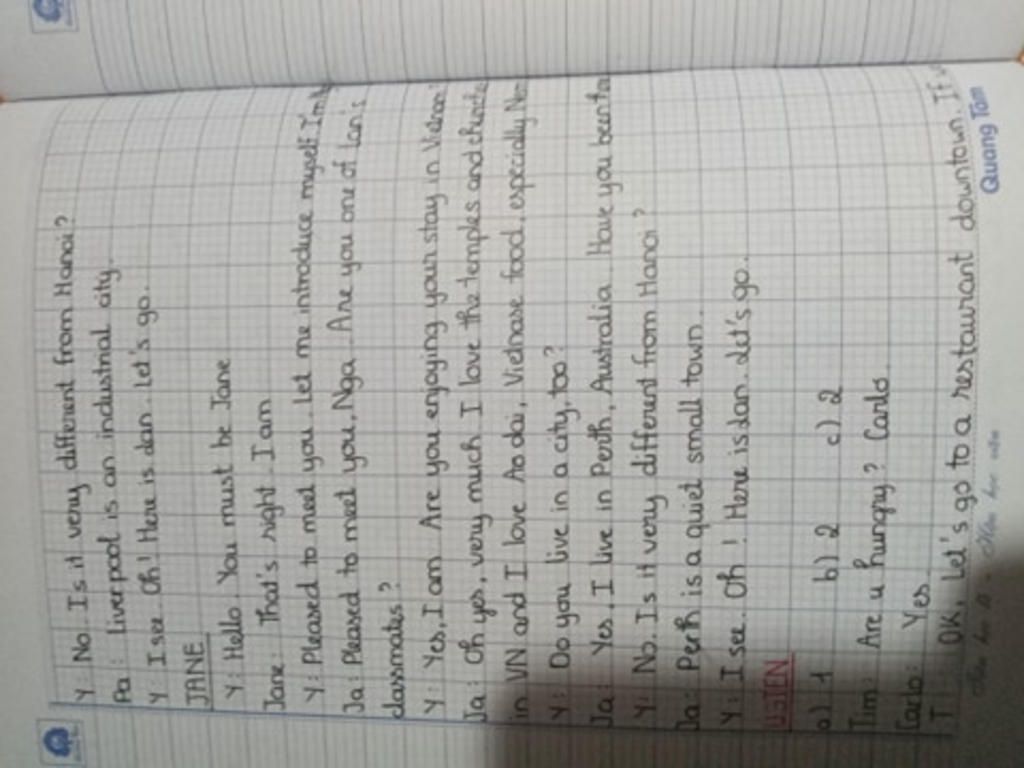 Y: No. Is it very different from Hanoi?
Pa: Liverpool is an industrial city.
Y: I see. Oh! Here is Lan. Let's go.
JANE
Y: Hello. You must be Jane
Jane: That's right. I am
Y: Pleased to meet you. Let me introduce myself. I'm
Ja: Pleased to meet you, Nga. Are you one of Lan's
classmates?
Y: Yes, I am. Are you enjoying your stay in
Ja: Oh yes, very much. I love the temples and
in VN and I love Ao dai, Vietnase food, especially
Y: Do you live in a city, too?
Ja: Yes, I live in Perth, Australia. Have you been
Y: No. Is it very different from Hanoi?
Ja: Perth is a quiet small town.
Y: I see. Oh! Here is Lan. Let's go.
LISTEN
a) 1 b) 2 c) 2
Tim: Are u hungry? Carlo.
Carlo: Yes.
T: OK, Let's go to a restaurant downtown. If
Quang Tam